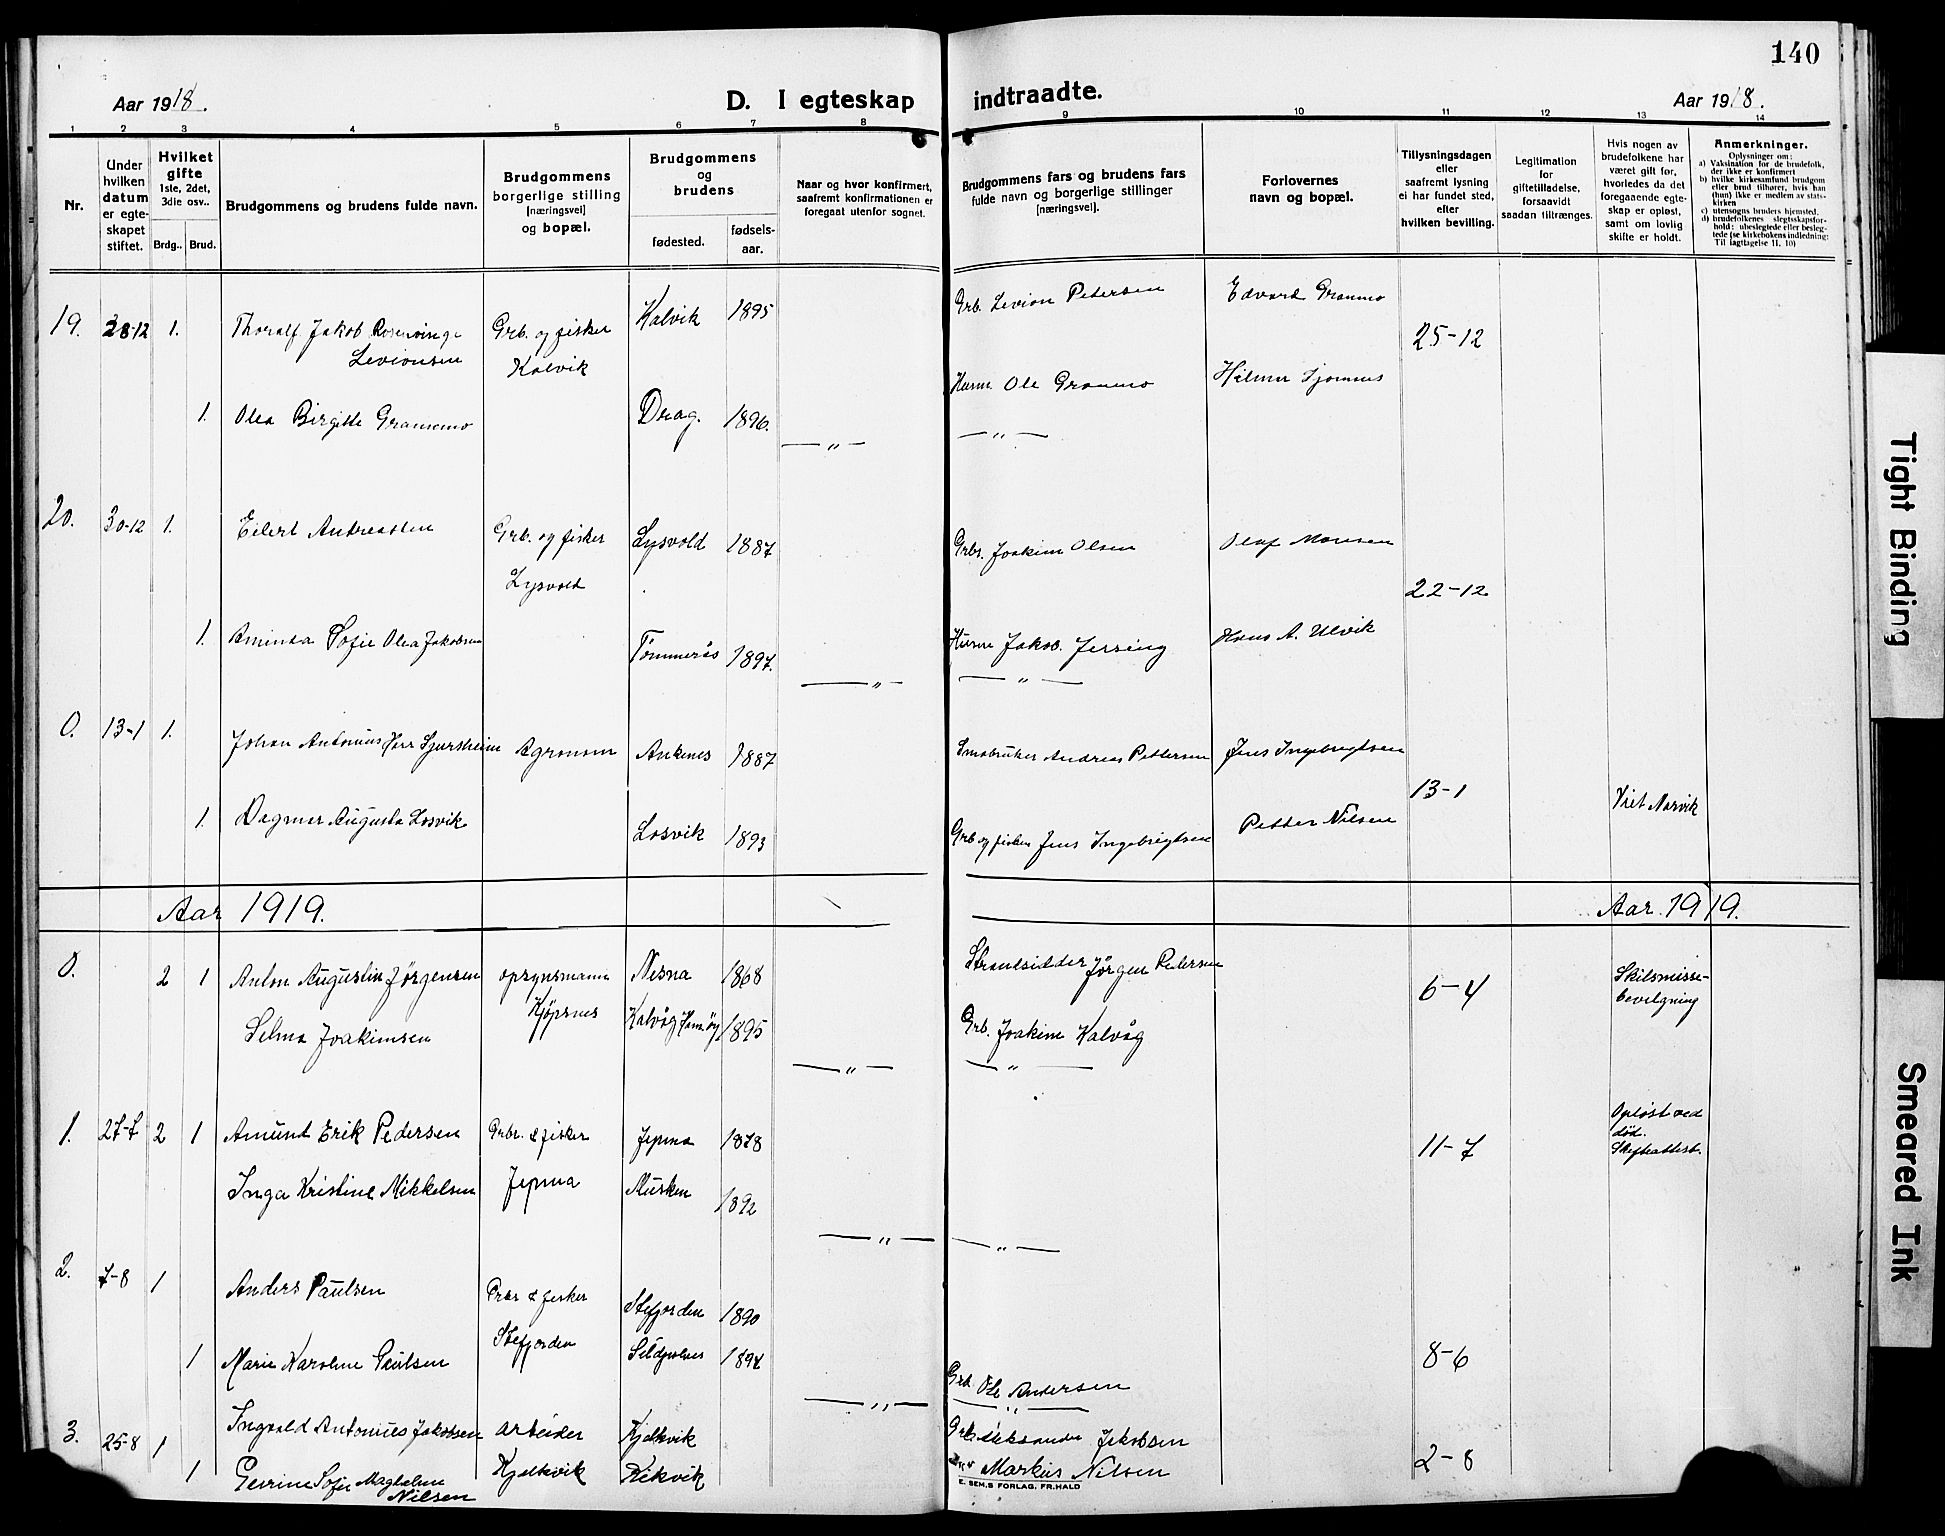 140
Aar 1918.
D. I egteskap
indtraadte.
Aar 1918.
1 2 3 4 5 6 7 8 9 10 11 12 13 14
Nr.
Under
hvilken
datum
er egte-
skapet
stiftet.
Hvilket
gifte
1ste, 2det,
3die osv..
Brdg.. Brud.
Brudgommens og brudens fulde navn.
Brudgommens
borgerlige stilling
(næringsvei)
og bopæl.
Brudgommens
og
brudens
fødested.
fødsels-
aar.
Naar og hvor konfirmert,
saafremt konfirmationen er
foregaat utenfor sognet.
Brudgommens fars og brudens fars
fulde navn og borgerlige stillinger
(næringsvei).
Forlovernes
navn og bopæl.
Tillysningsdagen
eller
saafremt lysning
ei har fundet sted,
efter
hvilken bevilling.
Legitimation
for
giftetilladelse,
forsaavidt
saadan tiltrænges.
Hvis nogen av
brudefolkene har
været gift før,
hvorledes da det
foregaaende egte-
skap er opløst,
samt om lovlig
skifte er holdt.
Anmerkninger.
Oplysninger om:
a) Vaksination for de brudefolk,
der ikke er konfirmert
b) hvilke kirkesamfund brudgom
eller brud tilhører, hvis han
(hun) ikke er medlem av stats-
kirken
c) utensogns bruders hjemsted.
d) brudefolkenes slegtsskapsfor-
hold: ubeslegtede eller besleg-
tede (se kirkebokens indledning:
Til iagttagelse 11. 10)
19. 28-12 1. Thoralf Jakob Rosenvinge Grb. og fisker Kalvik 1895 Grb. Levion Petersen Edvard Granmo
Levionsen Kalvik 25-12
1. Olea Birgitte Grammo Drag. 1896. Husm Ole Granmo Hilmar
— „ — — „ —
20. 30-12 1. Eilert Andreassen Grb. og fisker Lysvold 1887 Grbr. Joakim Olsen Olaf Monsen
Lysvold 22-12
1. Aminda Sofie Olea Jakobsen Tømmerås 1897. Husm Jakob Hans A. Ulvik
— „ — — „ —
0. 13-1 1. Johan Antonius Agronom Ankenes 1887 Smabruker Andreas Pettersen Jens Ingebrigtsen
13-1 Viet Narvik
1. Dagmar Augusta Losvik Losvik 1893 Grb og fisker Jens Ingebrigtsen Petter Nilsen
Aar 1919. Aar 1919.
0. 2 1 Anton Augustin Jørgensen opsynsmann Nesna 1868 Strandsidder Jørgen Pedersen 6-4 Skilsmisse-
bevilgning
Selma Joakimsen Kjøpsnes Kalvåg Hamarøy 1895 Grb. Joakim Kalvåg
— „ — — „ —
1. 27-7 2 1 Amund Erik Pedersen Grbr. & fisker Jepma 1878 11-7 Opløst ved
død.
Skifteattest.
Inga Kristine Mikkelsen Jepma Musken 1892
— „ — — „ —
2. 7-8 1 Anders Paulsen & fisker Stefjorden 1890
Stefjorden
1 Marie Karoline Paulsen 1894 8-6
Grb. Ole Andersen
— „ — — „ —
3. 25-8 1 Ingvald Antonius Jakobsen arbeider Kjelkvik Grb Aleksander Jakobsen
2-8
1 Sofie Magdalene Kjelkvik Kikvik Markus Nilsen
Nilsen
E. SEM.S FORLAG, FR.HALD
Tight Binding
Smeared Ink